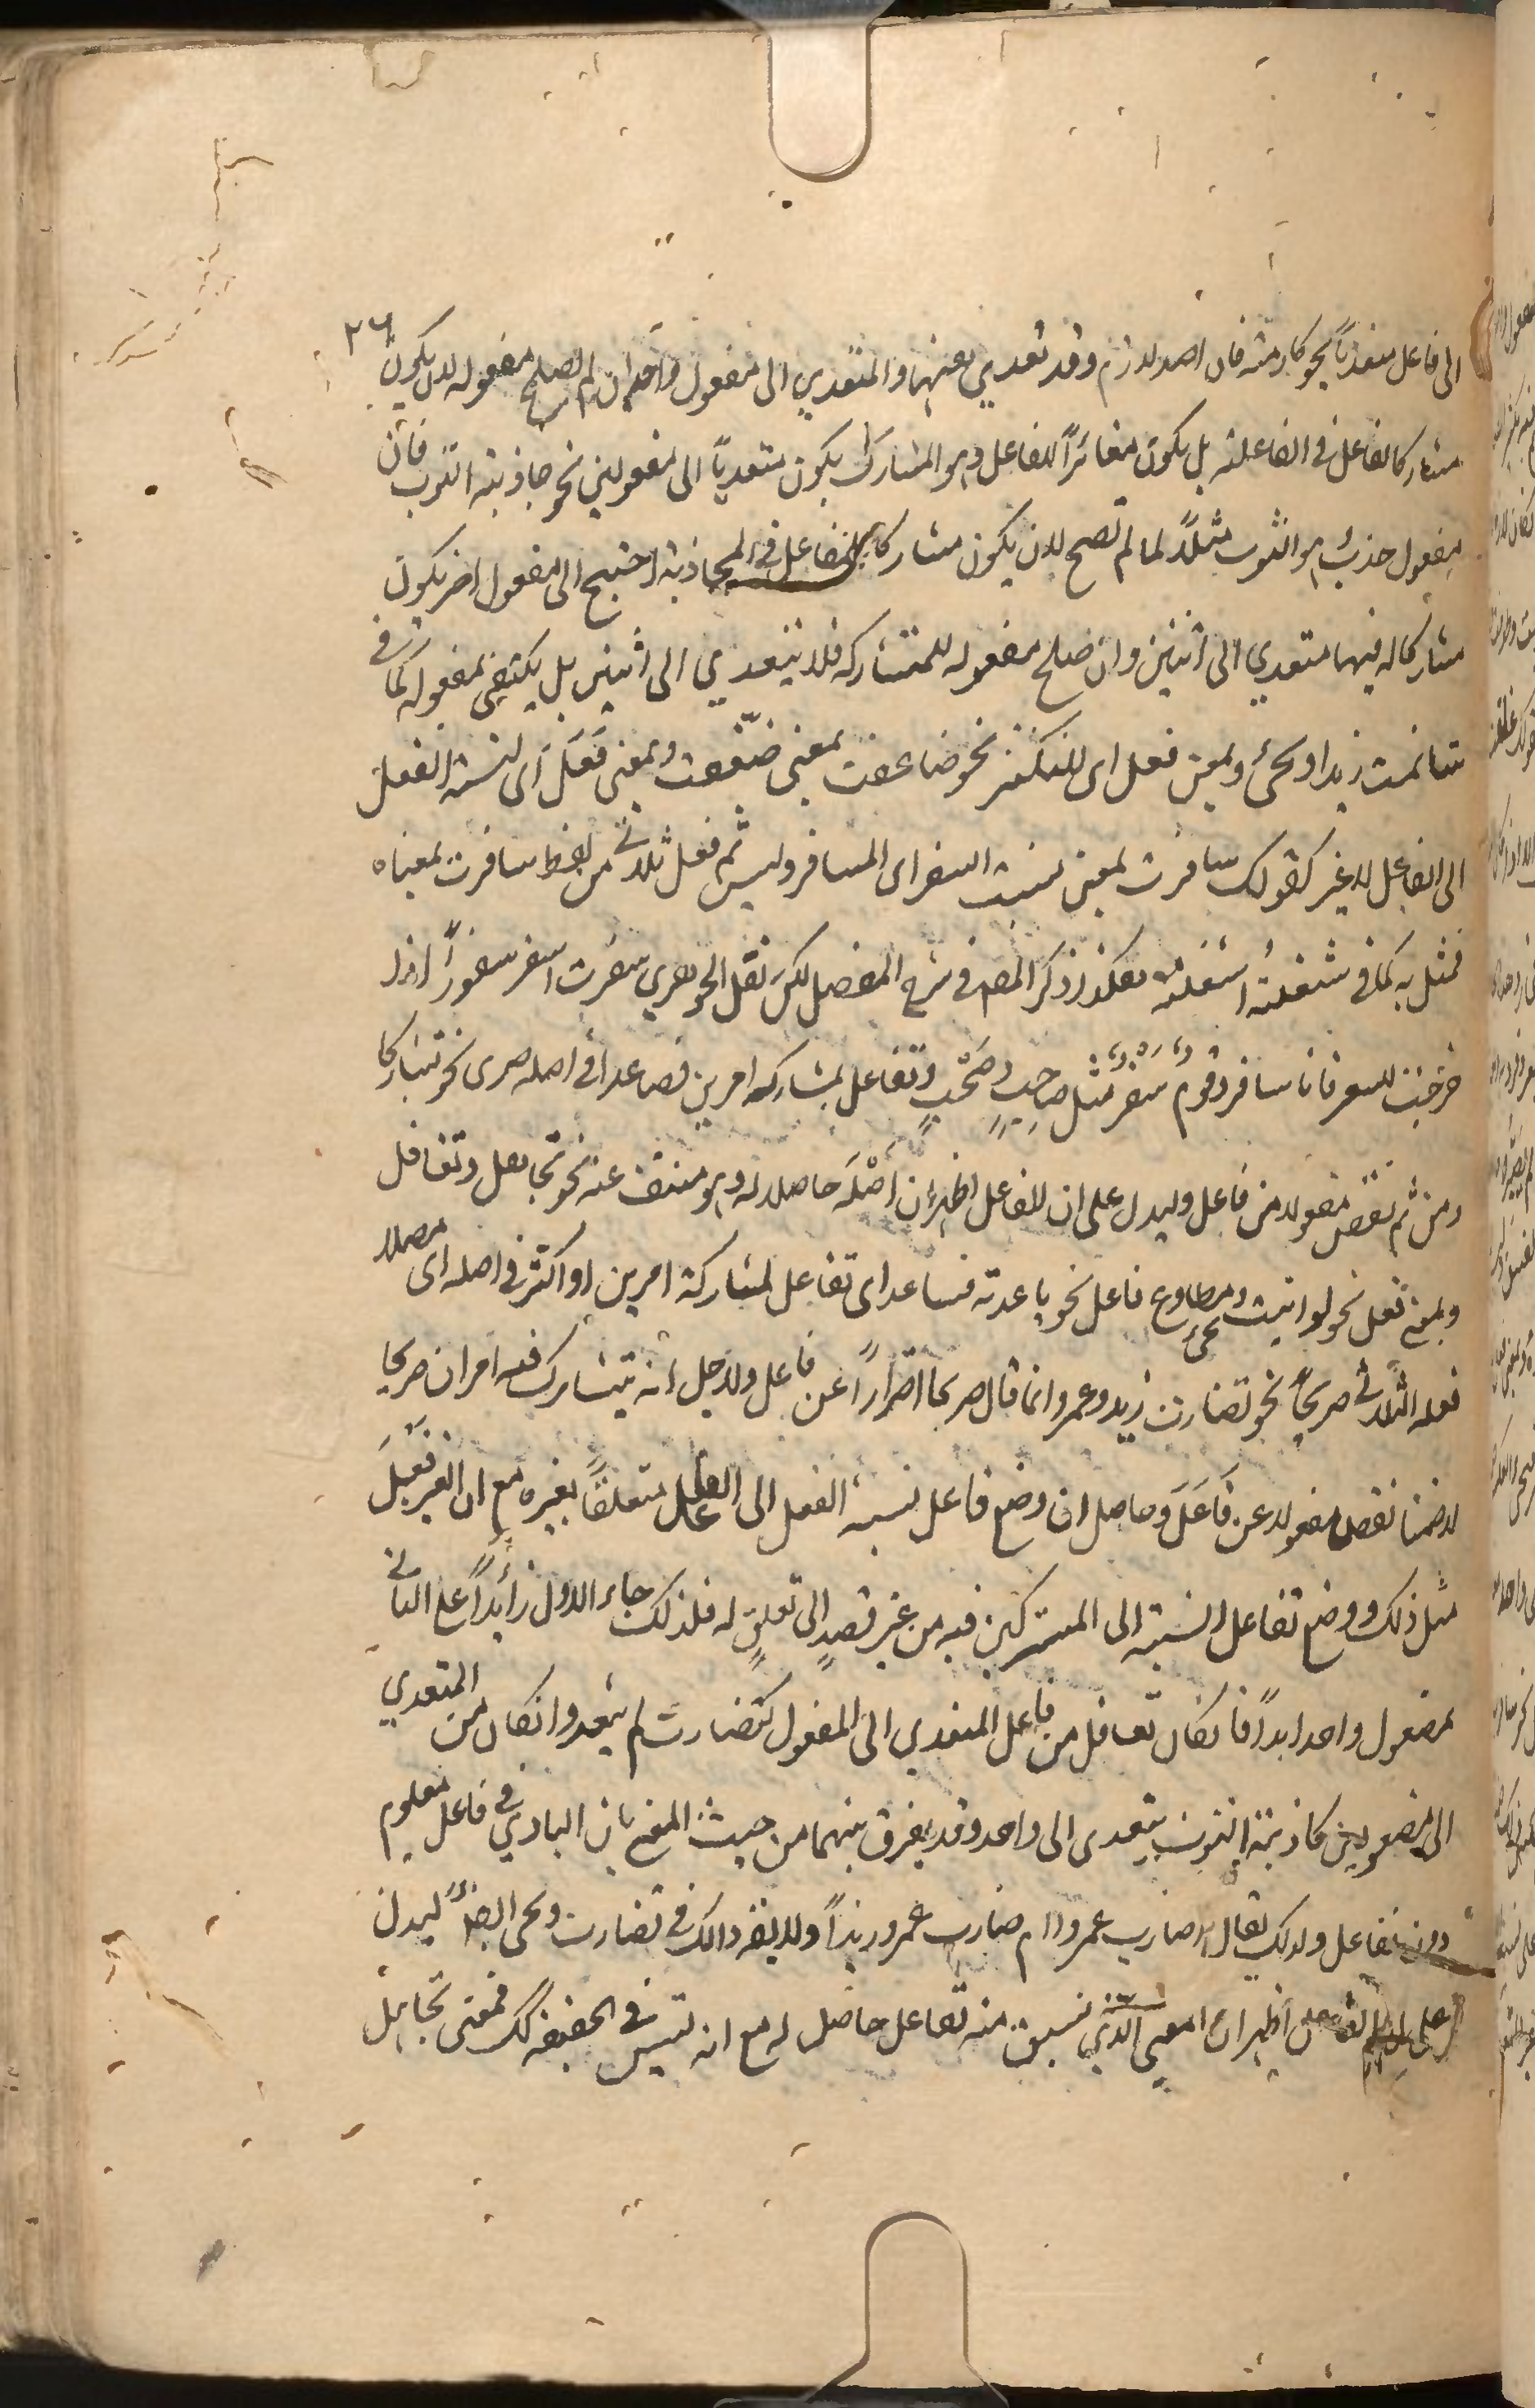 ٢٦
الى فاعل متعديا نحو كارمته فان اصله لازم وقد تعدى بعينها والمتعدي الى مفعول واحد ان لم يصلح مفعوله لان يكون
مشاركا لفاعل فى الفاعلية بل يكون مغائراً للفاعل وهو المشارك يكون متعدياً الى مفعولين نحو جاذبته الثوب فان
مفعول جذب هو الثوب مثلاً لما لم تصح لان يكون مشاركا للفاعل فى المجاذبة احتيج الى مفعول اخر يكون
مشاركا له فيها متعدي الى اثنين وان صلح مفعوله للمشاركه فلا يتعدي الى اثنين بل يكتفى بمفعوله كما فى
شاتمت زيدا ويجئ وبمعنى فعل اى للتكثير نحو ضاعفت بمعنى ضعّفت وبمعنى فَعَلَ اى لنسبة الفعل
الى الفاعل لا غير كقولك سافرت بمعنى نسبت السفر اى المسافر وليس ثم فعل ثلاثى من لفظ سافرت بمعناه
فمثل به كما فى شغلته اشغلته هكذا ذكر المص فى شرح المفصل لكن نقل الجوهري سفرت اسفر سفوراً اذا
خرجت للسفر فانا سافر وقوم سَفْرٌ مثل صاحِبٍ وصَحْبٍ وتفاعل لمشاركه امرين فصاعدا فى اصله صرى نحو تشاركا
ومن ثم نقص مفعولا من فاعل وليدل على ان الفاعل اظهر ان اَصْلَه حاصل له وهو منتف عنه نحو تجاهل وتغافل
وبمعنى فعل نحو توانيت ومطاوع فاعل نحو باعدته فتباعد اى تفاعل لمشاركة امرين او اكثر فى اصله اى مصدر
فعله الثلاثى صريحاً نحو تضارب زيد وعمرو انما قال صريحا احترازاً عن فاعل ولاجل انه يتشارك فيه امران صريحا
لا ضمنا نقص مفعولا عن فَاعَلَ وحاصل ان وضع فاعل نسبة الفعل الى الفاعل متعلقاً بغيره مع ان الغير فعَلَ
مثل ذلك ووضع تفاعل النسبة الى المشتركين فيه من غير قصدٍ الى تعلقٍ له فلذلك جاء الاول زائداً على الثانى
بمفعول واحد ابداً فان كان تفاعل من فاعل المتعدي الى المفعول كتضارب لم يتعد وان كان من المتعدي
الى مفعولين كجاذبته الثوب يتعدى الى واحد وقد يفرق بينهما من حيث المعنى بان البادي فى فاعل معلوم
دون تفاعل ولذلك يقال اضارب عمرو ام ضارب عمرو زيداً ولا يقه ذالك فى تضارب ويجئ ايضاً ليدل
على ان الفاعل اظهر ان المعنى الذي نسبق منه تفاعل حاصل له مع انه ليس فى الحقيقه كك فمعنى تجاهل